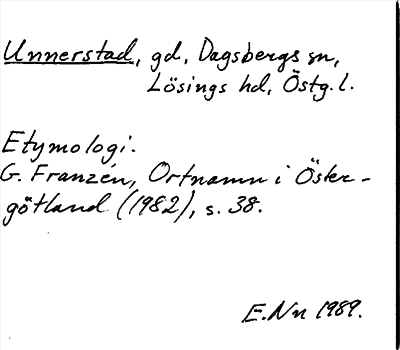 Unnerstad, gd, Dagsbergs sn,
Lösings hd, Östg. l.
Etymologi.
G. Franzén, Ortnamn i Öster-
götland (1982), s. 38.
E.Nn 1989.